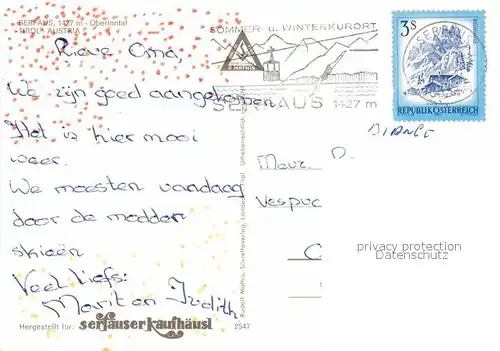 SERFAUS, 1427 m - Oberinntal
TIROL - AUSTRIA
SOMMER- u. WINTERKURORT
SERFAUS 1427 m
3 S
SERFAUS
REPUBLIK ÖSTERREICH
Lieve Oma,
We zijn goed aangekomen
Het is hier mooi
weer.
We moesten vandaag
door de modder
skieën
Veel liefs:
Marit en Judith
Mevr.
Vespuc
privacy protection
Datenschutz
Rudolf Mathis, Silvrettaverlag, Landeck, Tirol. Urheberrechtlich
Hergestellt für:
serfauser kaufhäusl
2547